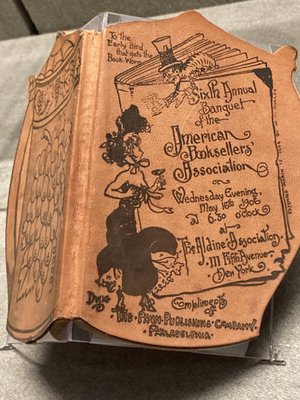 To the
Early Bird
that gets the
Book-Worm
Sixth Annual
Banquet
of the
American
Booksellers'
Association
on
Wednesday Evening,
May 16th 1906
at 6.30 o'clock
at
The Aldine Association
111 Fifth Avenue
New York
Compliments of
The Penn Publishing Company
Philadelphia